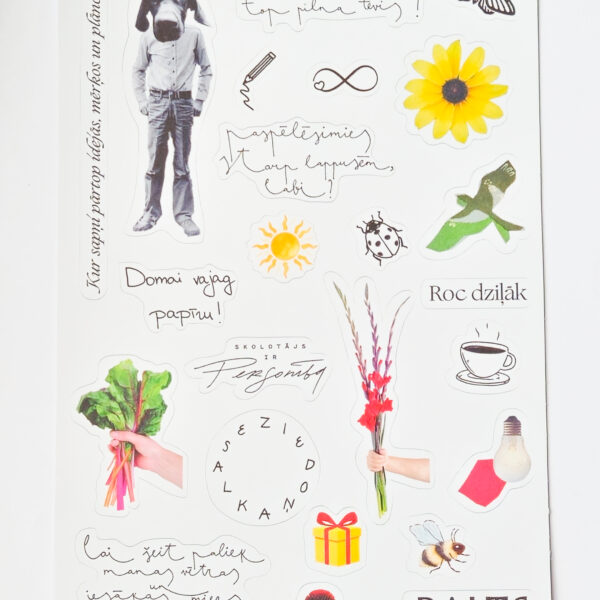 Kur sapņi pārtop idejās, mērķos un plāno
top pilna !
paspēlēsimies
starp lappusēm,
labi?
Domai vajag
papīru!
Roc dziļāk
SKOLOTĀJS
IR
Personība
ZIEDOŅA KLASE
Lai šeit paliek
manas vētras
un
iesākas miers
BALTS